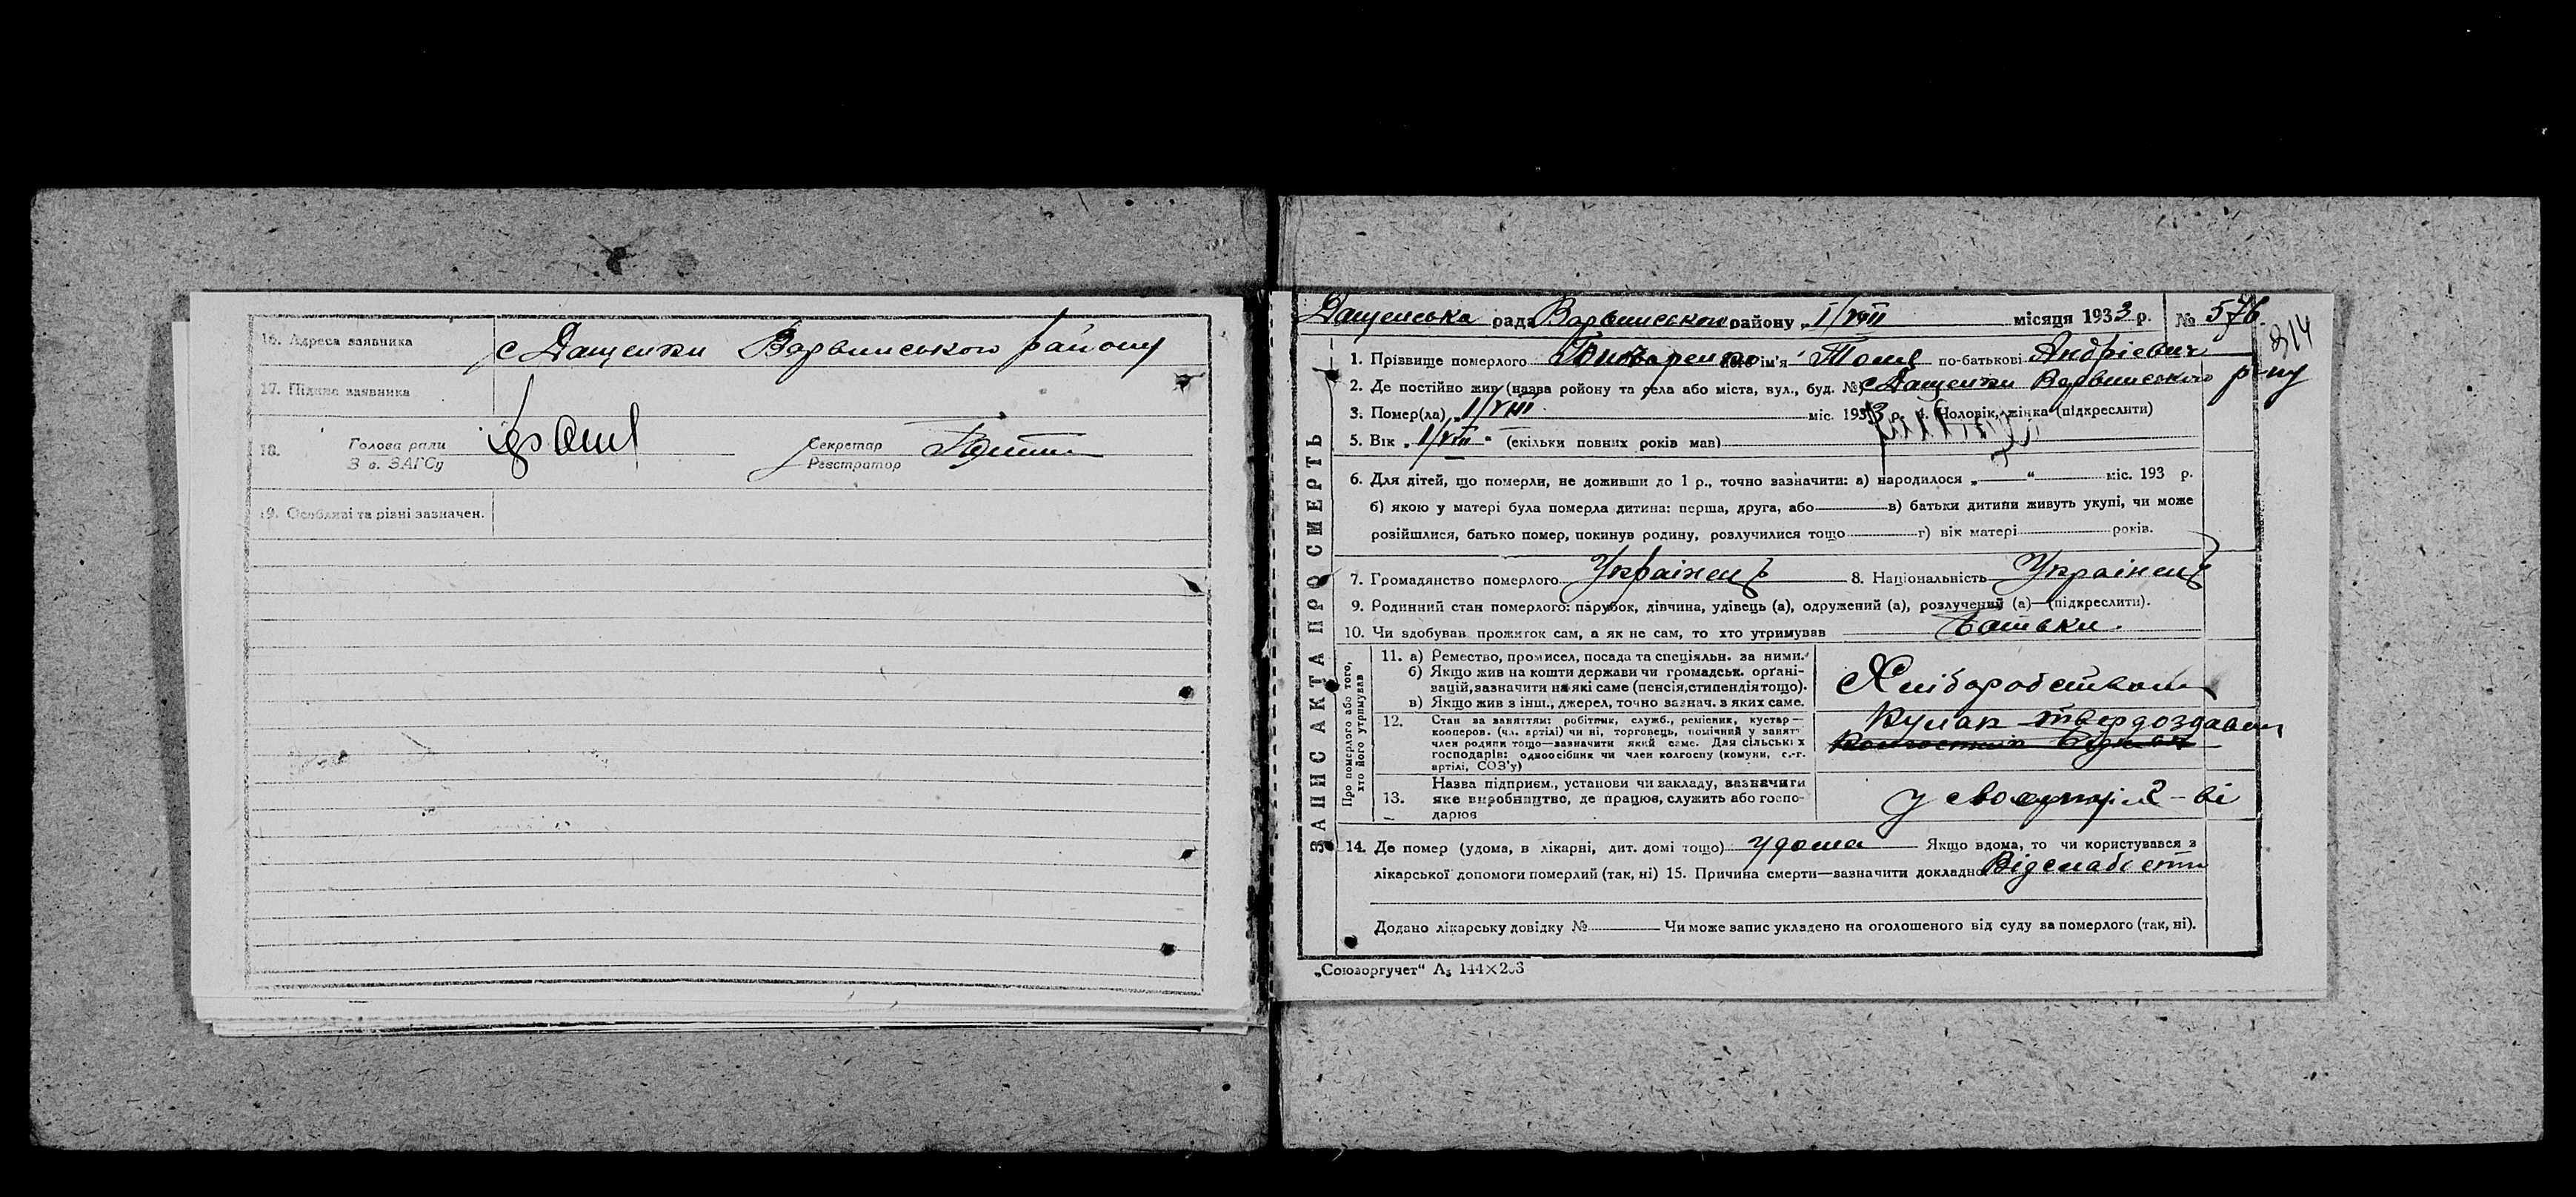 16. Адреса заявника с Дащенки Варвинського району
17. Підпис заявника
18. Голова ради Секретар
З в. ЗАГСу Реєстратор
19. Особливі та різні зазначен.
ЗАПИС АКТА ПРО СМЕРТЬ
Дащенська рада Варвинського району „ I/VIII місяця 1933 р. № 576
314
1. Прізвище померлого його ім'я по-батькові Андрієвич
2. Де постійно жив (назва ройону та села або міста, вул., буд. №) с Дащенки Варвинського р-ну
3. Помер(ла) „ I/VIII міс. 1933 р. 4. Чоловік, жінка (підкреслити)
5. Вік „ I/VIII “ (скільки повних років мав)
6. Для дітей, що померли, не доживши до 1 р., точно зазначити: а) народилося „ “ міс. 193 р.
б) якою у матері була померла дитина: перша, друга, або в) батьки дитини живуть укупі, чи може
розійшлися, батько помер, покинув родину, розлучилися тощо г) вік матері років.
7. Громадянство померлого Українець 8. Національність Українець
9. Родинний стан померлого: парубок, дівчина, удівець (а), одружений (а), розлучений (а)—(підкреслити).
10. Чи здобував прожиток сам, а як не сам, то хто утримував Батьки.
Про померлого або того,
хто його утримував
11. а) Ремество, промисел, посада та спеціяльн. за ними.
б) Якщо жив на кошти держави чи громадськ. орґані-
зацій, зазначити на які саме (пенсія, стипендія тощо).
в) Якщо жив з інш., джерел, точно зазнач. з яких саме.
Хліборобством
12. Стан за заняттям: робітник, служб., ремісник, кустар—
кооперов. (чл. артілі) чи ні, торговець, помічний у занятт
член родини тощо—зазначити який саме. Для сільських
господарів: одноосібник чи член колгоспу (комуни, с.-г.
артілі, СОЗ'у)
Кулак твердоздавец
13. Назва підприєм., установи чи закладу, зазначити
яке виробництво, де працює, служить або госпо-
дарює
у своєму
14. Де помер (удома, в лікарні, дит. домі тощо) удома Якщо вдома, то чи користувався з
лікарської допомоги померлий (так, ні) 15. Причина смерти—зазначити докладно Від слабости
Додано лікарську довідку № Чи може запис укладено на оголошеного від суду за померлого (так, ні).
„Союзоргучет“ А₅ 144×203